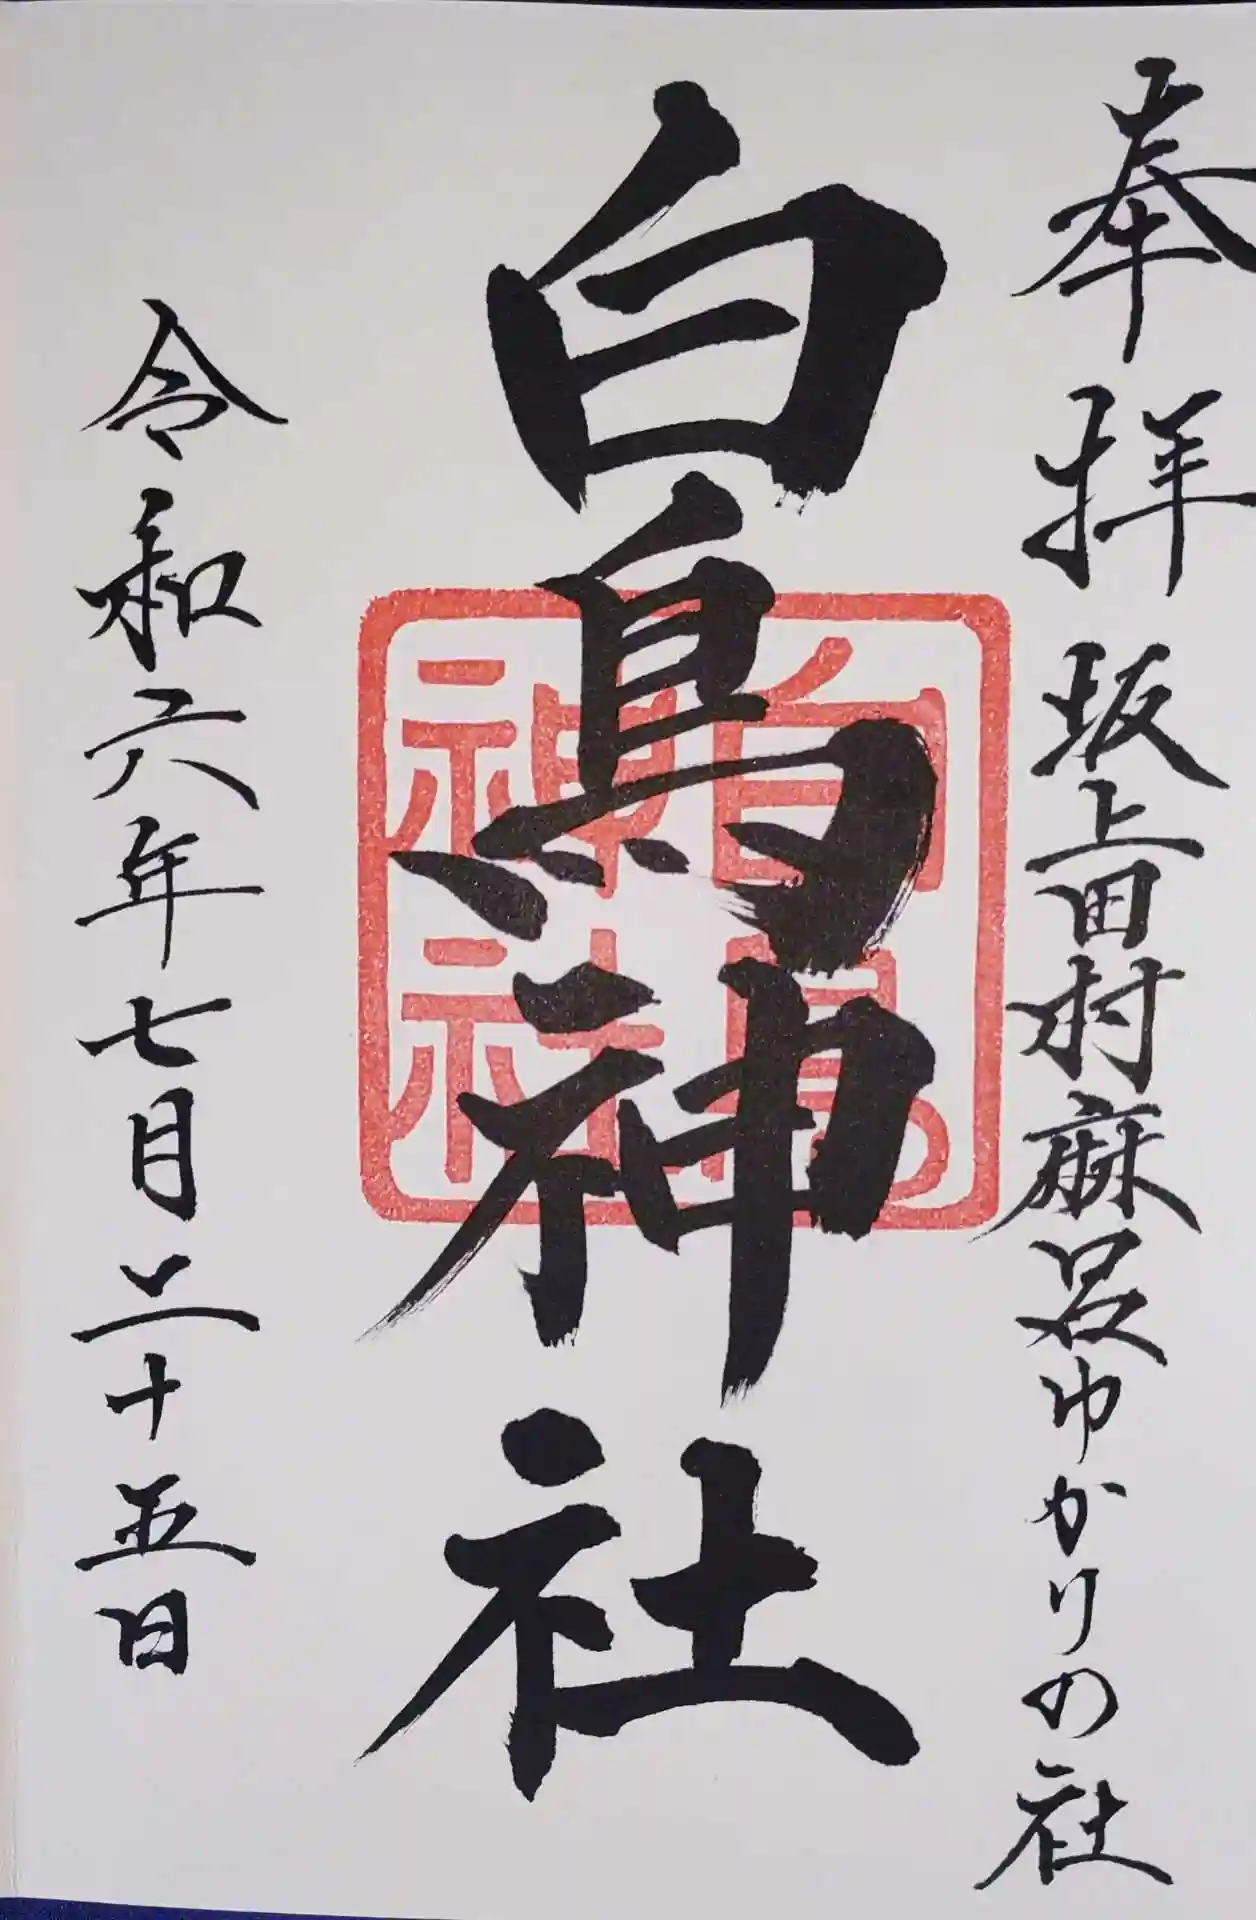 奉拝 坂上田村麻呂ゆかりの社
白鳥神社
白鳥
神社
令和六年七月二十五日